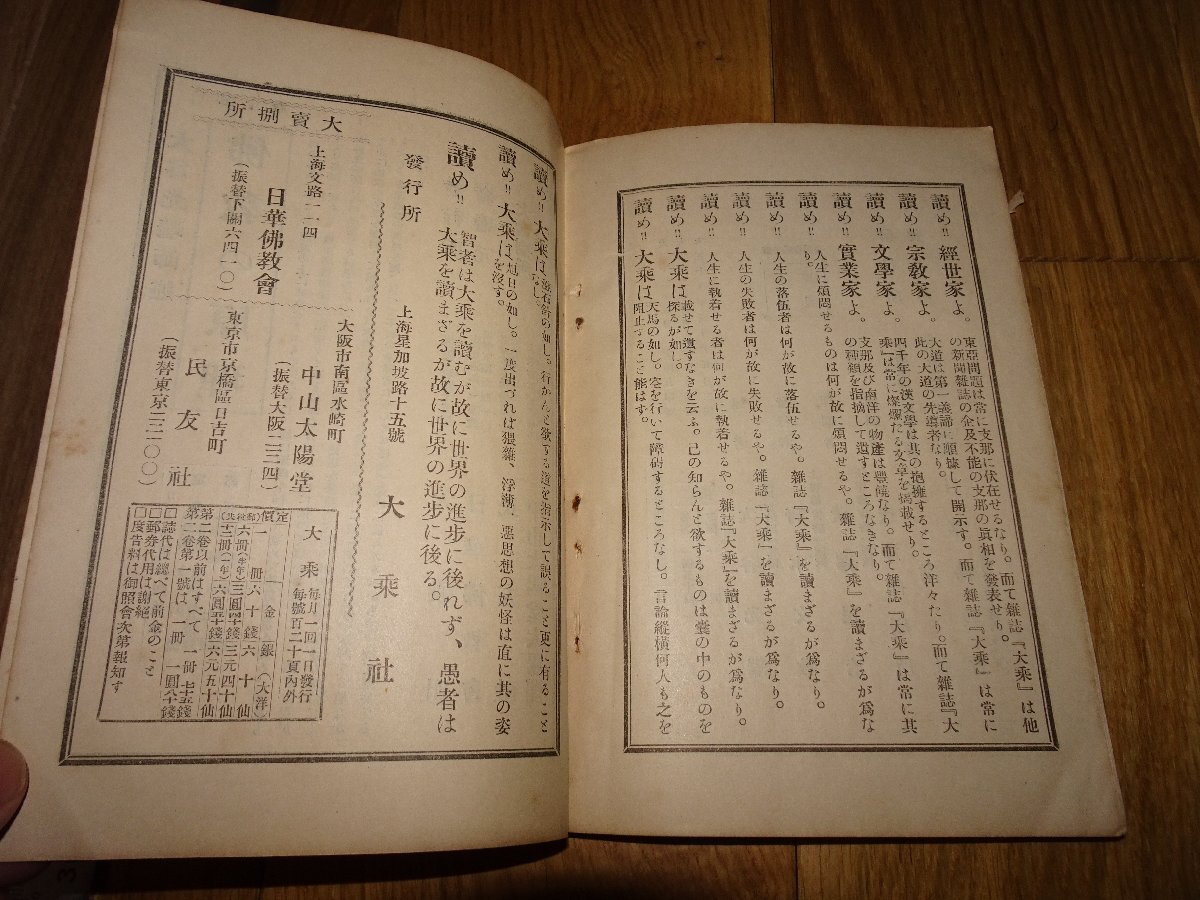 讀め!! 經世家よ。
東亞問題は常に支那に伏在せるなり。而て雜誌『大乘』は他
の新聞雜誌の企及不能の支那の眞相を發表せり。
讀め!! 宗敎家よ。
大道は第一義諦に順據して開示す。而て雜誌『大乘』は常に
此の大道の先導者なり。
讀め!! 文學家よ。
四千年の漢文學は其の抱擁するところ洋々たり。而て雜誌『大
乘』は常に燦爛たる文章を揭載せり。
讀め!! 實業家よ。
支那及び南洋の物產は豐饒なり。而て雜誌『大乘』は常に其
の種類を指摘して遺すところなきなり。
讀め!! 人生に煩悶せるものは何が故に煩悶せるや。雜誌『大乘』を讀まざるが爲な
り。
讀め!! 人生の落伍者は何が故に落伍せるや。雜誌『大乘』を讀まざるが爲なり。
讀め!! 人生の失敗者は何が故に失敗せるや。雜誌『大乘』を讀まざるが爲なり。
讀め!! 人生に執着せる者は何が故に執着せるや。雜誌『大乘』を讀まざるが爲なり。
讀め!! 大乘は載せて遺すなきを云ふ。己の知らんと欲するものは囊の中のものを
探るが如し。
讀め!! 大乘は天馬の如し。空を行いて障碍するところなし。言論縱橫何人も之を
阻止すること能はす。
讀め!! 大乘は
の如し。行かんと欲する道を指示して誤ること更に有ること
なし。
讀め!! 大乘は旭日の如し。一度出づれば猥雜、浮薄、惡思想の妖怪は直に其の姿
を沒す。
讀め!! 智者は大乘を讀むが故に世界の進步に後れず、愚者は
大乘を讀まざるが故に世界の進步に後る。
發行所 上海星加坡路十五號 大乘社
大賣捌所
上海文路一一四
日華佛敎會
(振替下關六四一〇)
大阪市南區水崎町
中山太陽堂
(振替大阪二三四)
東京市京橋區日古町
民友社
(振替東京三二一〇〇)
大乘 每月一回一日發行
每號百二十頁內外
定價 金 銀(大洋)
一冊 六十錢 六十仙
六冊(半年) 三圓四十錢 三元四十仙
十二冊(一年) 六圓五十錢 六元五十仙
第二卷以前はすべて一冊七十五錢
第二卷第一號は一冊一圓八十錢
□誌代は總べて前金のこと
□郵券代用は謝絕
□廣告料は御照會次第報知す